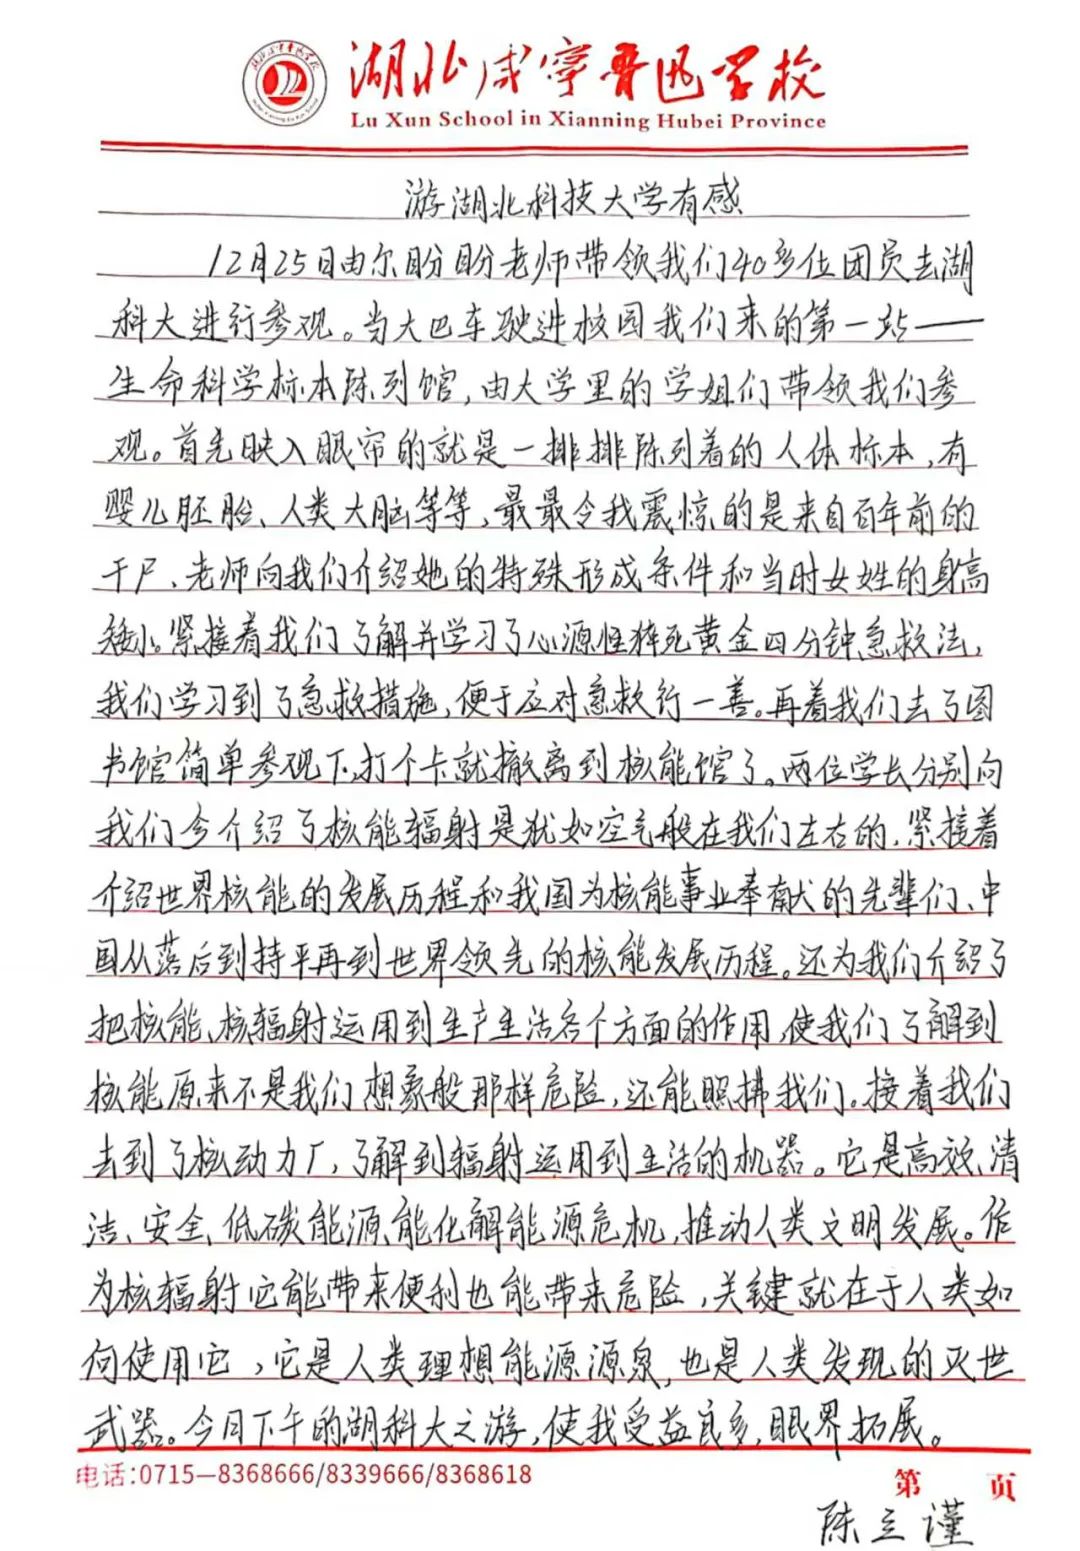 湖北咸宁鲁迅学校
Lu Xun School in Xianning Hubei Province
游湖北科技大学有感
12月25日由尔盼盼老师带领我们40多位团员去湖
科大进行参观。当大巴车驶进校园我们来的第一站——
生命科学标本陈列馆,由大学里的学姐们带领我们参
观。首先映入眼帘的就是一排排陈列着的人体标本,有
婴儿胚胎、人类大脑等等,最最令我震惊的是来自百年前的
干尸、老师向我们介绍她的特殊形成条件和当时女姓的身高
矮小。紧接着我们了解并学习了心源性猝死黄金四分钟急救法,
我们学习到了急救措施,便于应对急救行一善。再着我们去了图
书馆简单参观下、打个卡就撤离到核能馆了。两位学长分别向
我们今介绍了核能辐射是犹如空气般在我们左右的,紧接着
介绍世界核能的发展历程和我国为核能事业奉献的先辈们、中
国从落后到持平再到世界领先的核能发展历程。还为我们介绍了
把核能、核辐射运用到生产生活各个方面的作用,使我们了解到
核能原来不是我们想象般那样危险,还能照拂我们。接着我们
去到了核动力厂,了解到辐射运用到生活的机器。它是高效、清
洁、安全、低碳能源,能化解能源危机,推动人类文明发展。作
为核辐射它能带来便利也能带来危险,关键就在于人类如
何使用它,它是人类理想能源源泉,也是人类发现的灭世
武器。今月下午的湖科大之游,使我受益良多,眼界拓展。
电话:0715—8368666/8339666/8368618
第 页
陈立谨